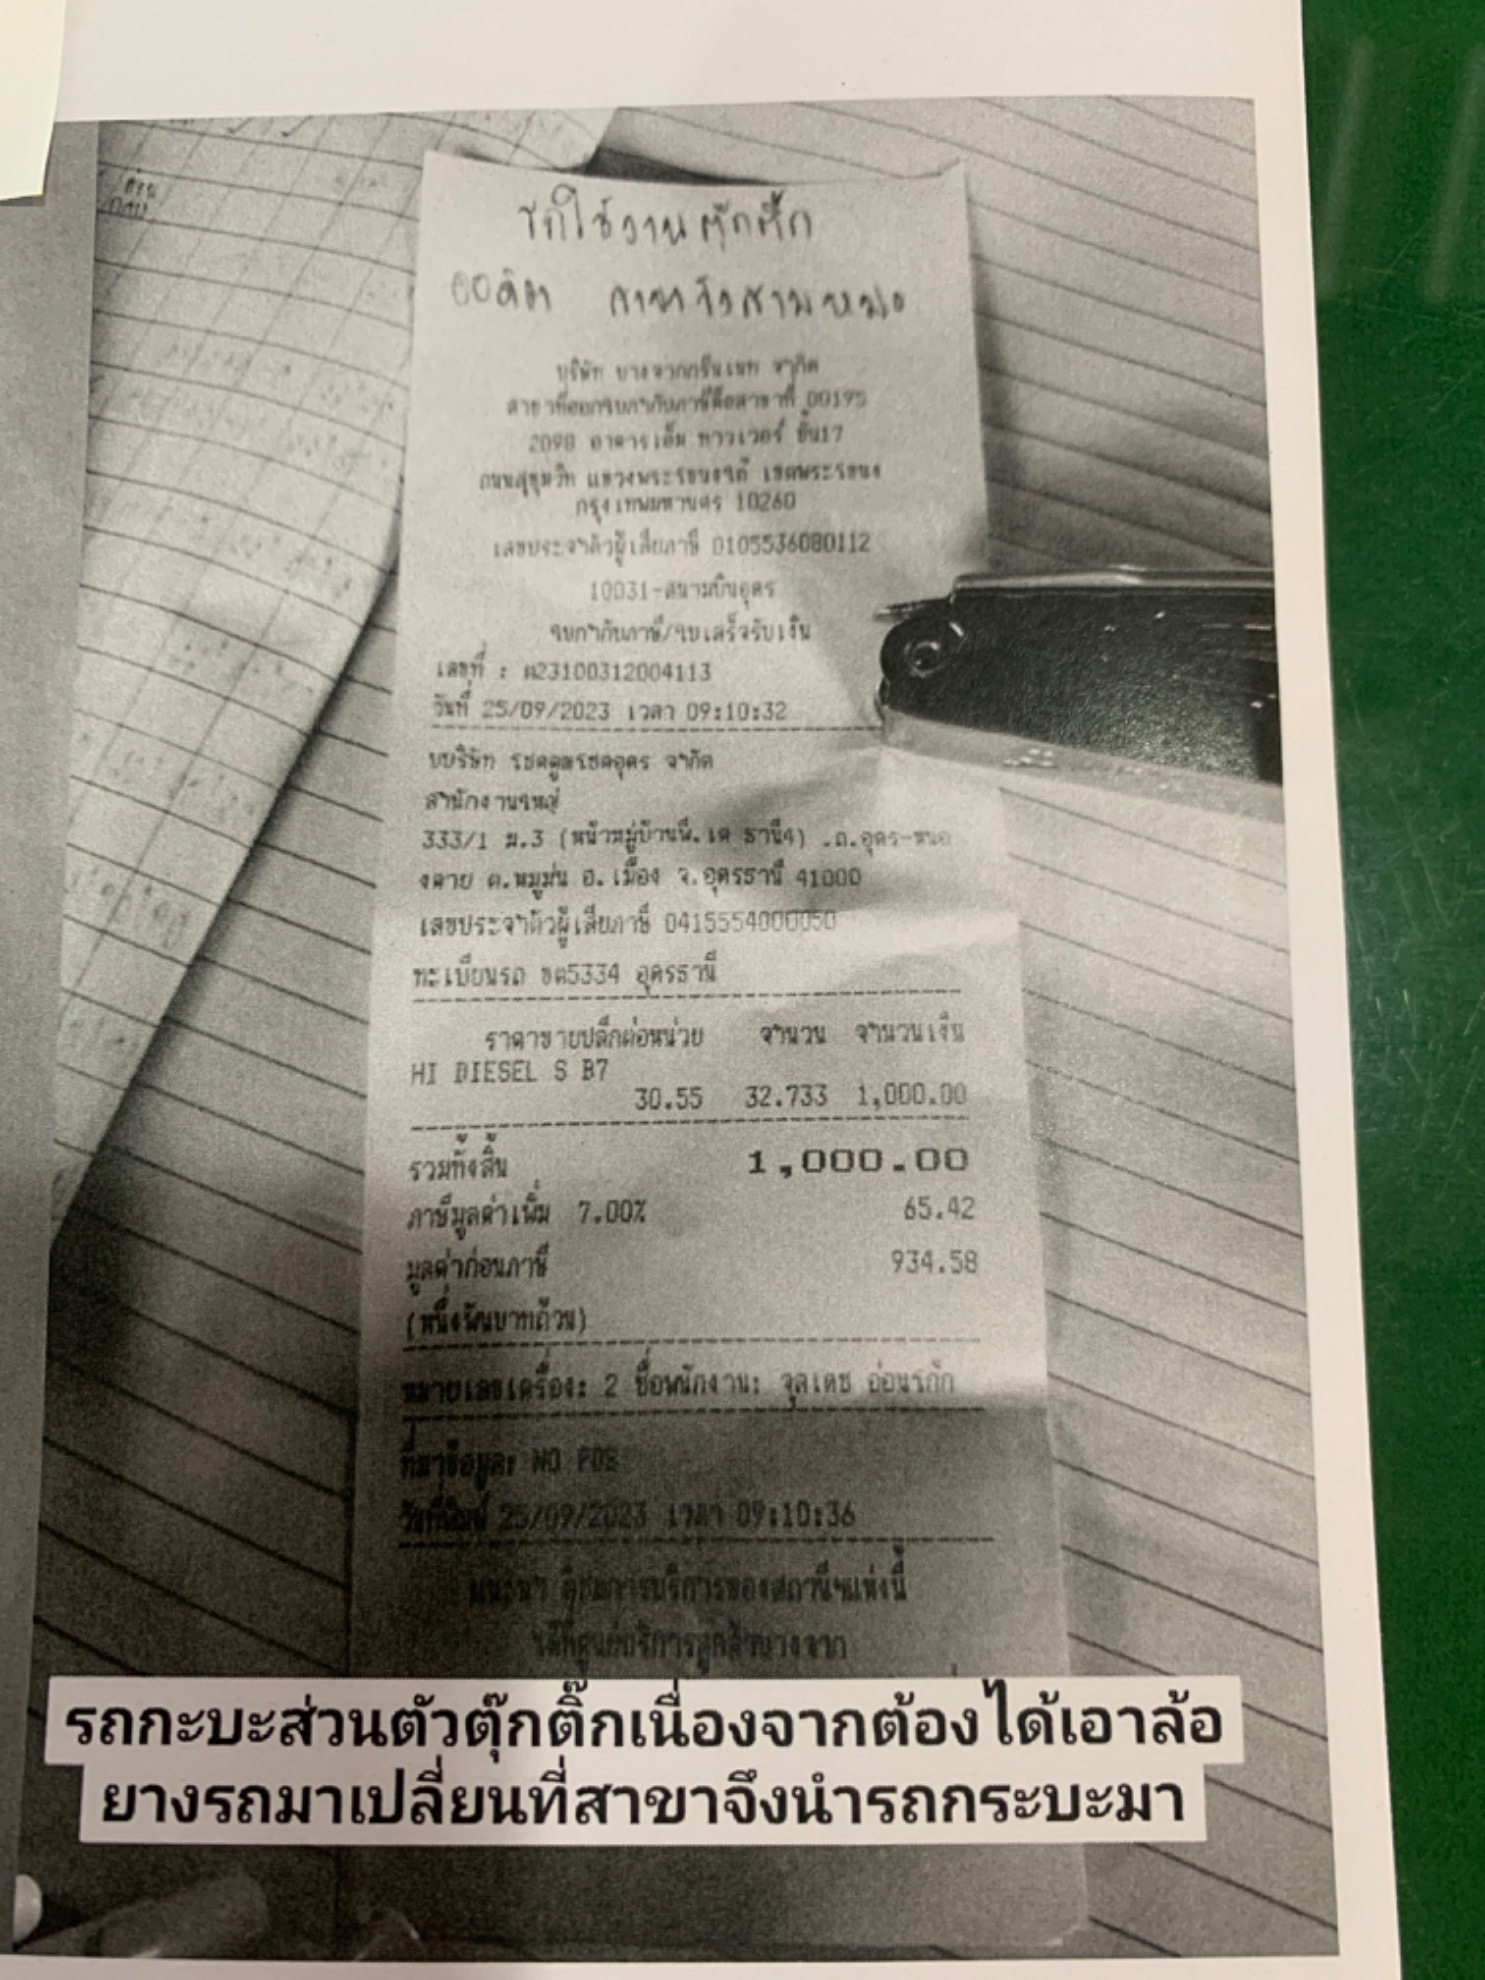 รถใช้งานตุ๊กติ๊ก
ออดิต สาขาวังสามหมอ
บริษัท บางจากกรีนเนท จำกัด
สาขาที่ออกใบกำกับภาษีคือสาขาที่ 00195
2098 อาคารเอ็ม ทาวเวอร์ ชั้น17
ถนนสุขุมวิท แขวงพระโขนงใต้ เขตพระโขนง
กรุงเทพมหานคร 10260
เลขประจำตัวผู้เสียภาษี 0105536080112
10031-สนามบินอุดร
ใบกำกับภาษี/ใบเสร็จรับเงิน
เลขที่ : ต23100312004113
วันที่ 25/09/2023 เวลา 09:10:32
บบริษัท โชคคูณโชคอุดร จำกัด
สำนักงานใหญ่
333/1 ม.3 (หน้าหมู่บ้านพี.เค ธานี4) .ถ.อุดร-หนอ
งคาย ต.หมูม่น อ.เมือง จ.อุดรธานี 41000
เลขประจำตัวผู้เสียภาษี 0415554000050
ทะเบียนรถ ขต5334 อุดรธานี
ราคาขายปลีกต่อหน่วย จำนวน จำนวนเงิน
HI DIESEL S B7
30.55 32.733 1,000.00
รวมทั้งสิ้น 1,000.00
ภาษีมูลค่าเพิ่ม 7.00% 65.42
มูลค่าก่อนภาษี 934.58
(หนึ่งพันบาทถ้วน)
หมายเลขเครื่อง: 2 ชื่อพนักงาน: จุลเดช อ่อนรักั
ที่มาข้อมูล: NO POS
วันที่พิมพ์ 25/09/2023 เวลา 09:10:36
แนะนำ ติชมการบริการของสถานีฯแห่งนี้
ได้ที่ศูนย์บริการลูกค้าบางจาก
รถกะบะส่วนตัวตุ๊กติ๊กเนื่องจากต้องได้เอาล้อ
ยางรถมาเปลี่ยนที่สาขาจึงนำรถกระบะมา